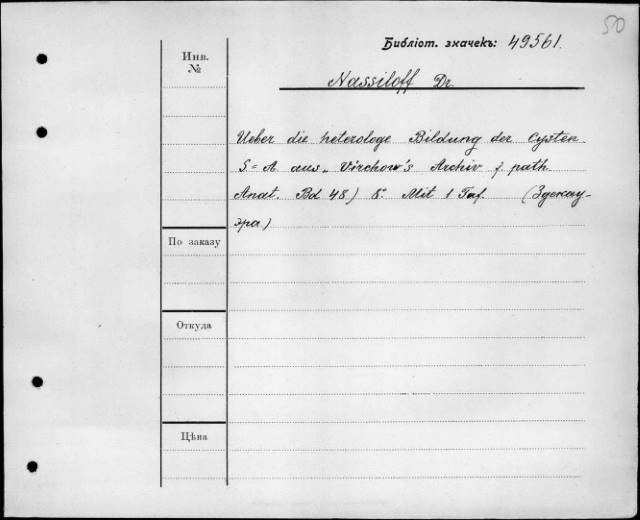 50
Библіот. значекъ: 49561.
Инв.
№
Nassiloff Dr.
Ueber die heterologe Bildung der Cysten.
S=A aus „Virchow's Archiv f. path.
Anat. Bd 48) 8° Mit 1 Taf. (Здекау-
эра)
По заказу
Откуда
Цѣна